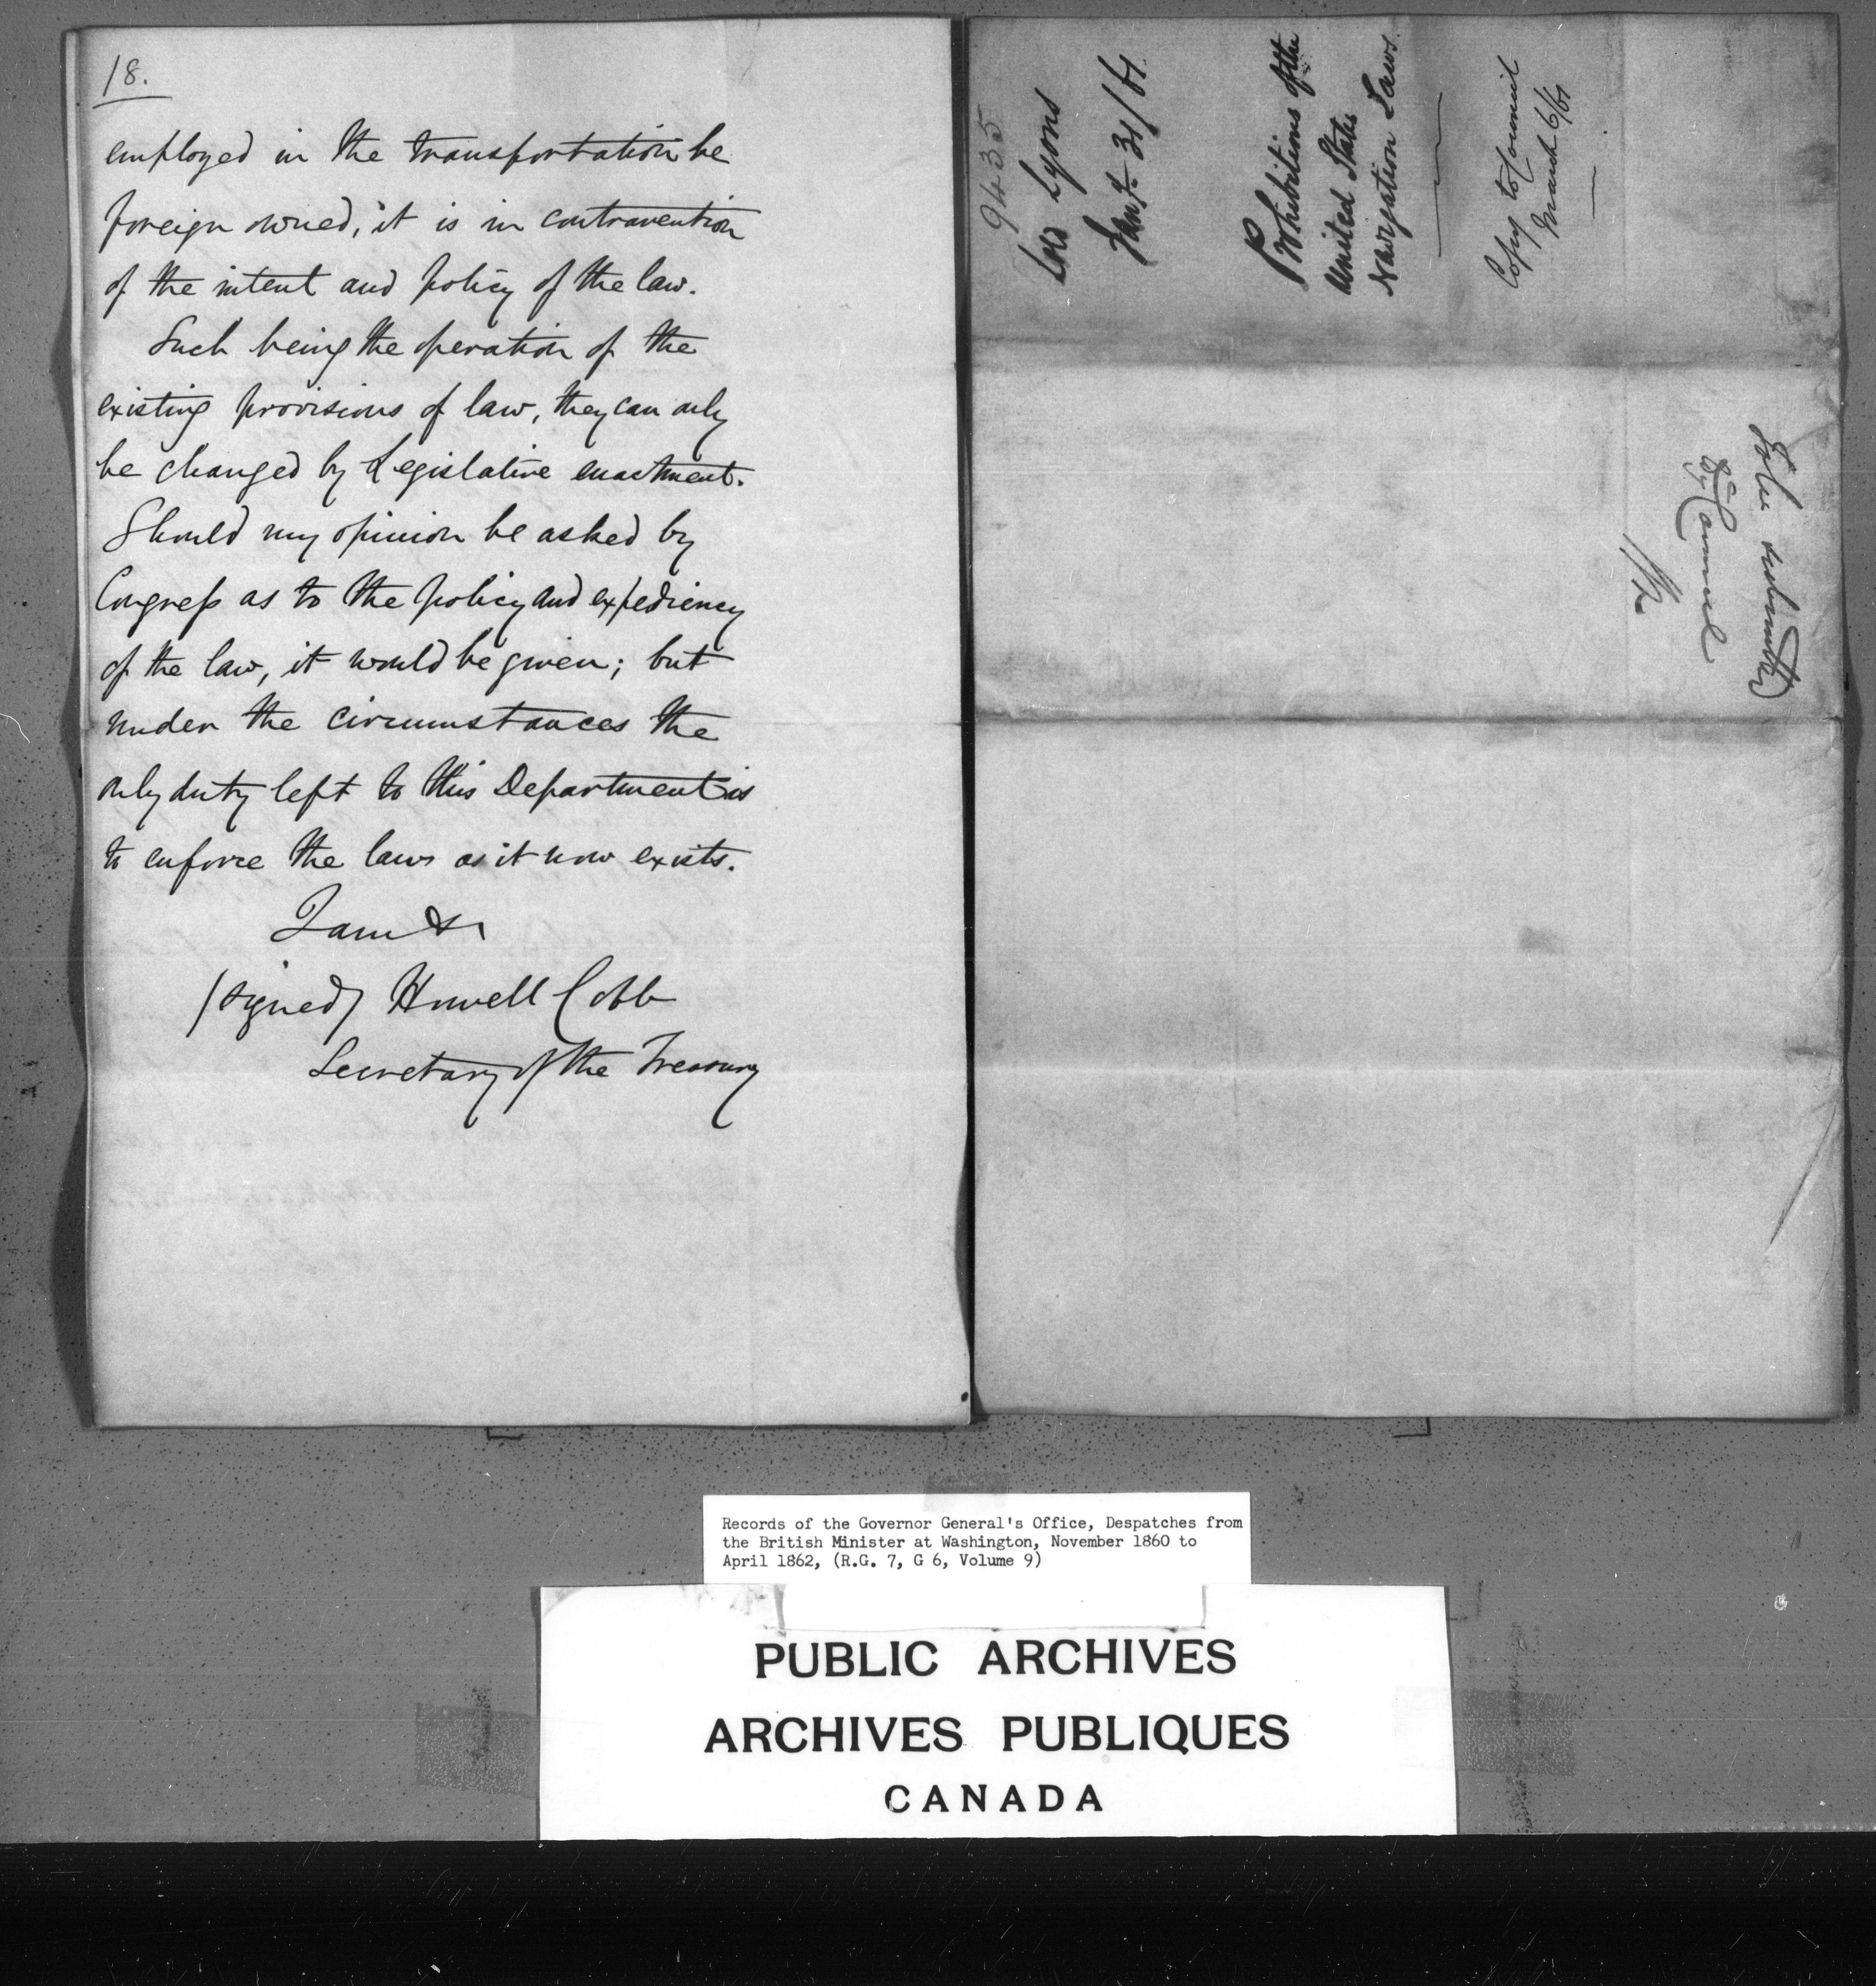 18.
employed in the transportation be
foreign owned, it is in contravention
of the intent and policy of the law.
Such being the operation of the
existing provisions of law, they can only
be changed by Legislative enactment.
Should my opinion be asked by
Congress as to the policy and expediency
of the law, it would be given; but
under the circumstances the
only duty left to this Department is
to enforce the laws as it now exists.
I am &c
(signed) Howell Cobb
Secretary of the Treasury
9435
Lord Lyons
Jany 31/61.
Prohibitions of the
United States
Navigation Laws.
Copy to Council
March 6/61
To be submitted
to Council
Records of the Governor General's Office, Despatches from
the British Minister at Washington, November 1860 to
April 1862, (R.G. 7, G 6, Volume 9)
PUBLIC ARCHIVES
ARCHIVES PUBLIQUES
CANADA